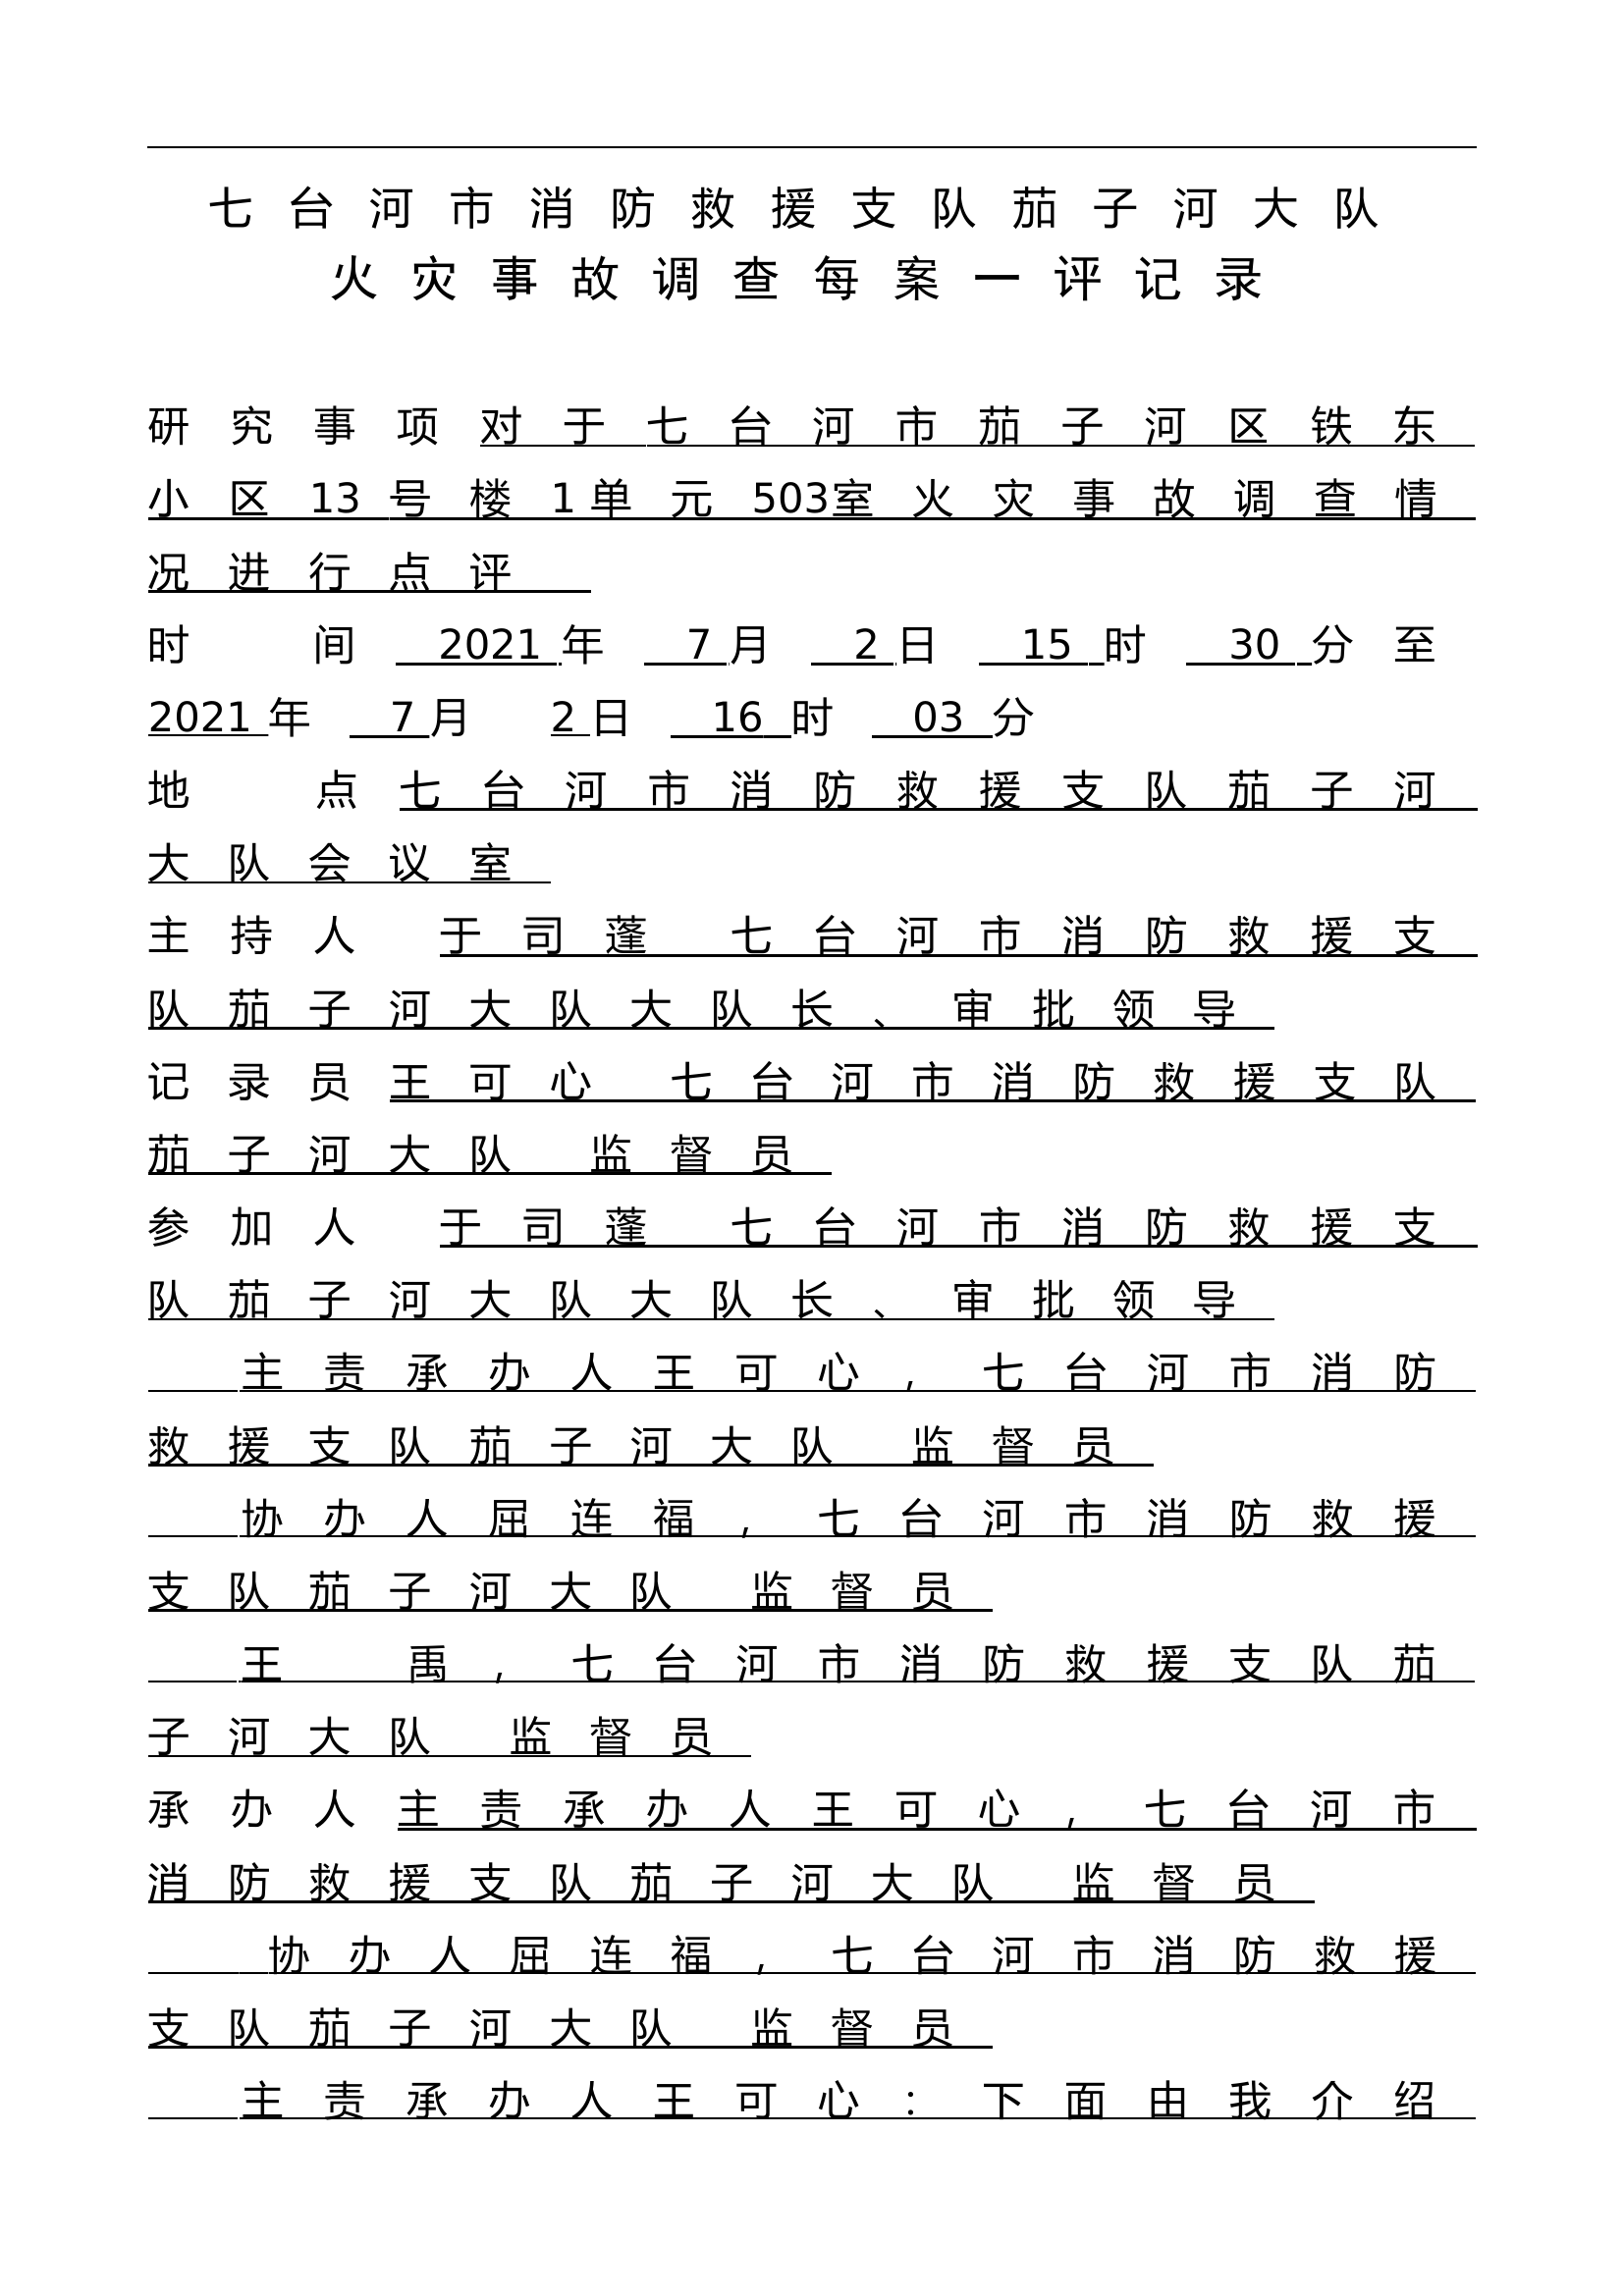 七台河市消防救援支队茄子河大队
火灾事故调查每案一评记录
研究事项对于七台河市茄子河区铁东
小区13号楼1单元503室火灾事故调查情
况进行点评
时 间 2021年 7月 2日 15时 30分至
2021年 7月 2日 16时 03分
地 点七台河市消防救援支队茄子河
大队会议室
主持人 于司蓬 七台河市消防救援支
队茄子河大队大队长、审批领导
记录员王可心 七台河市消防救援支队
茄子河大队 监督员
参加人 于司蓬 七台河市消防救援支
队茄子河大队大队长、审批领导
主责承办人王可心, 七台河市消防
救援支队茄子河大队 监督员
协办人屈连福, 七台河市消防救援
支队茄子河大队 监督员
王 禹, 七台河市消防救援支队茄
子河大队 监督员
承办人主责承办人王可心, 七台河市
消防救援支队茄子河大队 监督员
协办人屈连福, 七台河市消防救援
支队茄子河大队 监督员
主责承办人王可心: 下面由我介绍